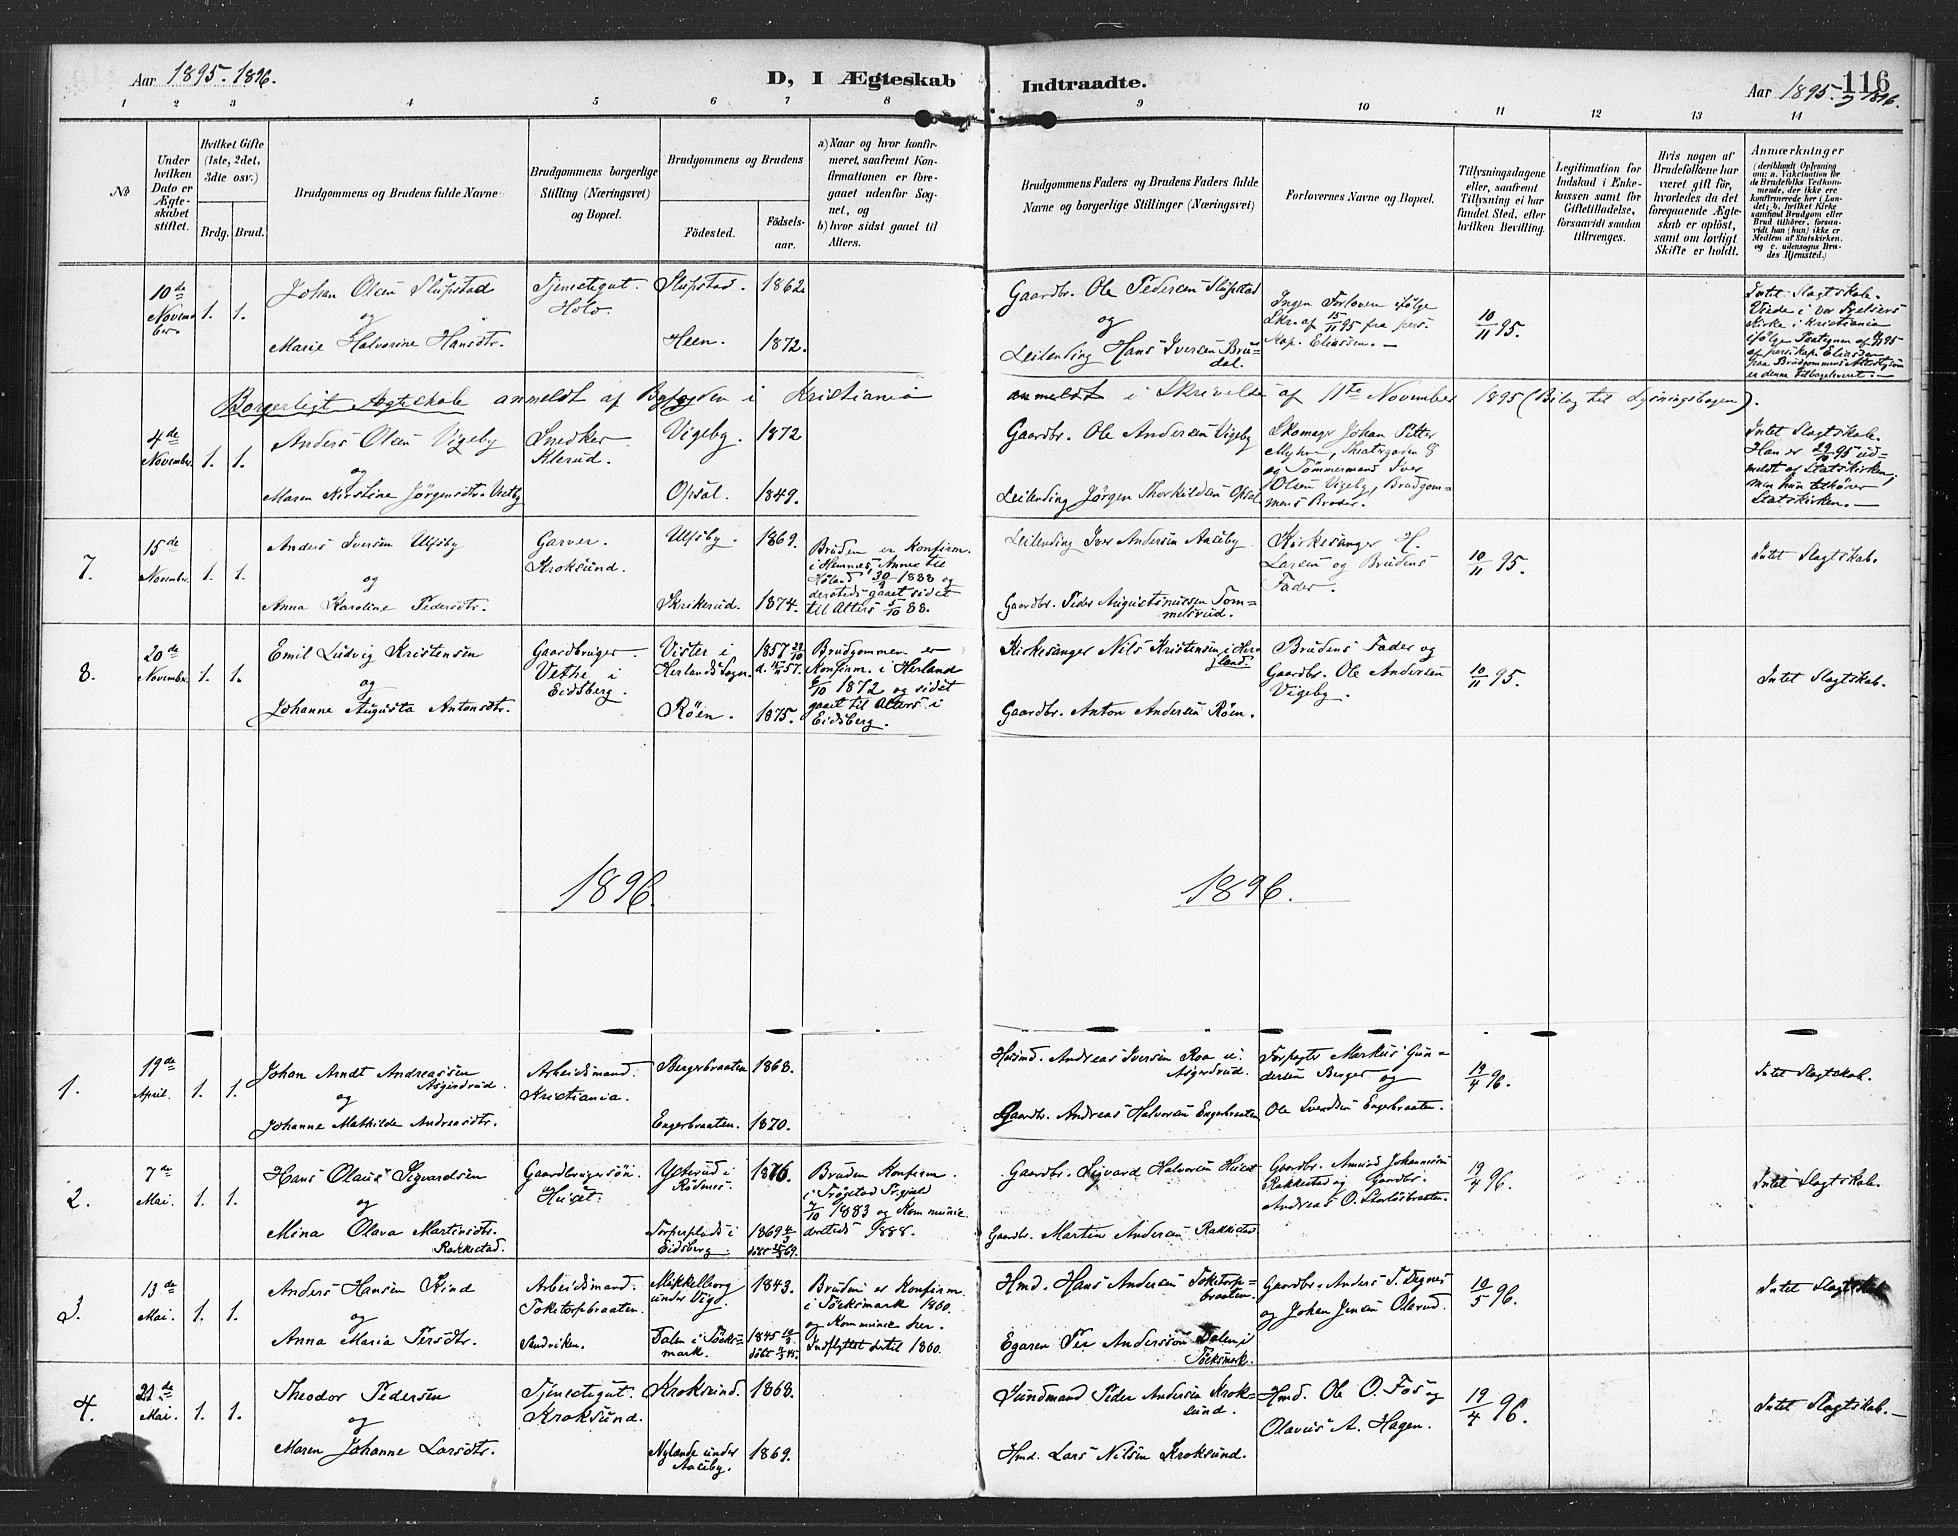 Aar 1895-1896.
D, I Ægteskab
Indtraadte.
Aar 1895-1896.
116
1 2 3 4 5 6 7 8 9 10 11 12 13 14
No
Under hvilken Dato er Ægteskabet stiftet.
Hvilket Gifte (1ste, 2det, 3die osv.)
Brdg. Brud.
Brudgommens og Brudens fulde Navne
Brudgommens borgerlige Stilling (Næringsvei) og Bopæl.
Brudgommens og Brudens
Fødested.
Fødselsaar.
a) Naar og hvor konfirmeret, saafremt Konfirmationen er foregaaet udenfor Sognet, og
b) hvor sidst gaaet til Alters.
Brudgommens Faders og Brudens Faders fulde Navne og borgerlige Stillinger (Næringsvei)
Forlovernes Navne og Bopæl.
Tillysningsdagene eller, saafremt Tillysning ei har fundet Sted, efter hvilken Bevilling.
Legitimation for Indskud i Enkekassen samt for Giftetilladelse, forsaavidt saadan tiltrænges.
Hvis nogen af Brudefolkene har været gift før, hvorledes da det foregaaende Ægteskab er opløst, samt om lovligt Skifte er holdt.
Anmærkninger
(deriblandt Oplysning om: a. Vakcination for de Brudefolks Vedkommende, der ikke ere konfirmerede her i Landet; b. hvilket Kirkesamfund Brudgom eller Brud tilhører, forsaavidt han (hun) ikke er Medlem af Statskirken, og c. udensogns Brudes Hjemsted.)
10de November 1. 1.
Johan Olsen Slupstad
og
Marie Halvorine Hansdtr.
Tjenestegut. Holo.
Slupstad. 1862
Heen. 1872.
Gaardbr. Ole Pedersen Slupstad
og
Leilending Hans Iversen Brudal.
Ingen Forlovere ifølge Skr. af 15/11 95 fra pers. Kap. Eliassen.
10/11 95.
Intet Slagtskab.
Viede i Vor Frelsers Kirke i Kristiania ifølge
Borgerligt Ægteskab anmeldt af Byfogden i Kristiania
anmeldt i Skrivelse af 11te November 1895 (Bilag til Lysningsbogen).
4de November. 1. 1.
Anders Olsen Vigeby
og
Maren Kirstine Jørgensdtr.
Snedker Klerud.
Vigeby. 1872
Opsal. 1849.
Gaardbr. Ole Andersen Vigeby
Leilending Jørgen Thorkildsen Opsal
Skomager Johan Petter Myhre, Theatergaden 8 og Tømmermand Iver Olsen Vigeby, Brudgommens Broder.
Intet Slagtskab.
Han er 29/10 95 udmeldt af Statskirken, men hun tilhører Statskirken.
7. 15de November. 1. 1.
Anders Iversen Ulfsby
og
Anna Karoline Pedersdtr.
Garver. Kroksund.
Ulfsby. 1869.
Skrikerud. 1874.
Bruden er Konfirm. i Hemnes, Annex til Høland 30/9 1888 og dersteds gaaet sidst til Alters 5/10 88.
Leilending Iver Andersen Aaseby
Gaardbr. Peder Augustinussen Tommelsrud.
Kirkesanger H. Larsen og Brudens Fader.
10/11 95.
Intet Slagtskab.
8. 20de November. 1. 1.
Emil Ludvig Kristensen
og
Johanne Augusta Antonsdtr.
Gaardbruger Vethe i Eidsberg.
Vister i Herlands Sogn 1857
Røen. 1875.
Brudgommen er Konfirm. i Herland 6/10 1872 og sidst gaaet til Alters i Eidsberg.
Kirkesanger Nils Kristensen i Herland.
Gaardbr. Anton Andersen Røen.
Brudens Fader og Gaardbr. Ole Andersen Vigeby.
10/11 95.
Intet Slagtskab.
1896.
1896.
1. 19de April. 1. 1.
Johan Arndt Andreassen Asgerdrud.
og
Johanne Mathilde Andreasdtr.
Arbeidsmand. Kristiania.
Bergerbraaten 1868.
Engerbraaten. 1870.
Husmd. Andreas Iversen Roa u. Asgerdrud.
Gaardbr. Andreas Halvorsen Engerbraaten
Forpagter Markus Gundersen Berger og
Ole Svendsen Engerbraaten.
19/4 96.
Intet Slagtskab.
2. 7de Mai. 1. 1.
Hans Olaus Sigvardsen
og
Mina Olava Martinsdtr. Rakkestad.
Gaardbrugersøn Huset.
Ysterud i Rødenes. 1876.
Torperplads i Eidsberg. 1869 4/3
Bruden Konfirm. i Trøgstad 7/10 1883 og Kommunic. dersteds 1888.
Gaardbr. Sigvard Halvorsen Huset
Gaardbr. Martin Andersen Rakkestad
Gaardbr. Amund Johannesen Rakkestad og Gaardbr. Andreas O. Storlosbraaten.
19/4 96.
Intet Slagtskab.
3. 13de Mai. 1. 1.
Anders Hansen Kind
og
Anna Maria Persdtr.
Arbeidsmand. Toketorpbraaten.
Sandviken.
Mikkelborg under Vig. 1843.
Dalen i Töcksmark. 1845
Bruden er Konfirm. i Töcksmark 1860. og Kommunic. her. Indflyttet hertil 1860.
Hmd. Hans Andersen Toketorpbraaten.
Egaren Per Andersson Dalen i Töcksmark.
Gaardbr. Anders T. Degnes og Johan Jensen Olerud.
10/5 96.
Intet Slagtskab
4. 21de Mai. 1. 1.
Theodor Pedersen
og
Maren Johanne Larsdtr.
Tjenestegut. Kroksund.
Kroksund. 1868.
Nylænde under Aaseby. 1869.
Hundmand Peder Andersen Kroksund.
Hmd. Lars Nilsen Kroksund.
Hmd. Ole O. Fos og
Olavus A. Hagen.
19/4 96.
Intet Slagtskab.